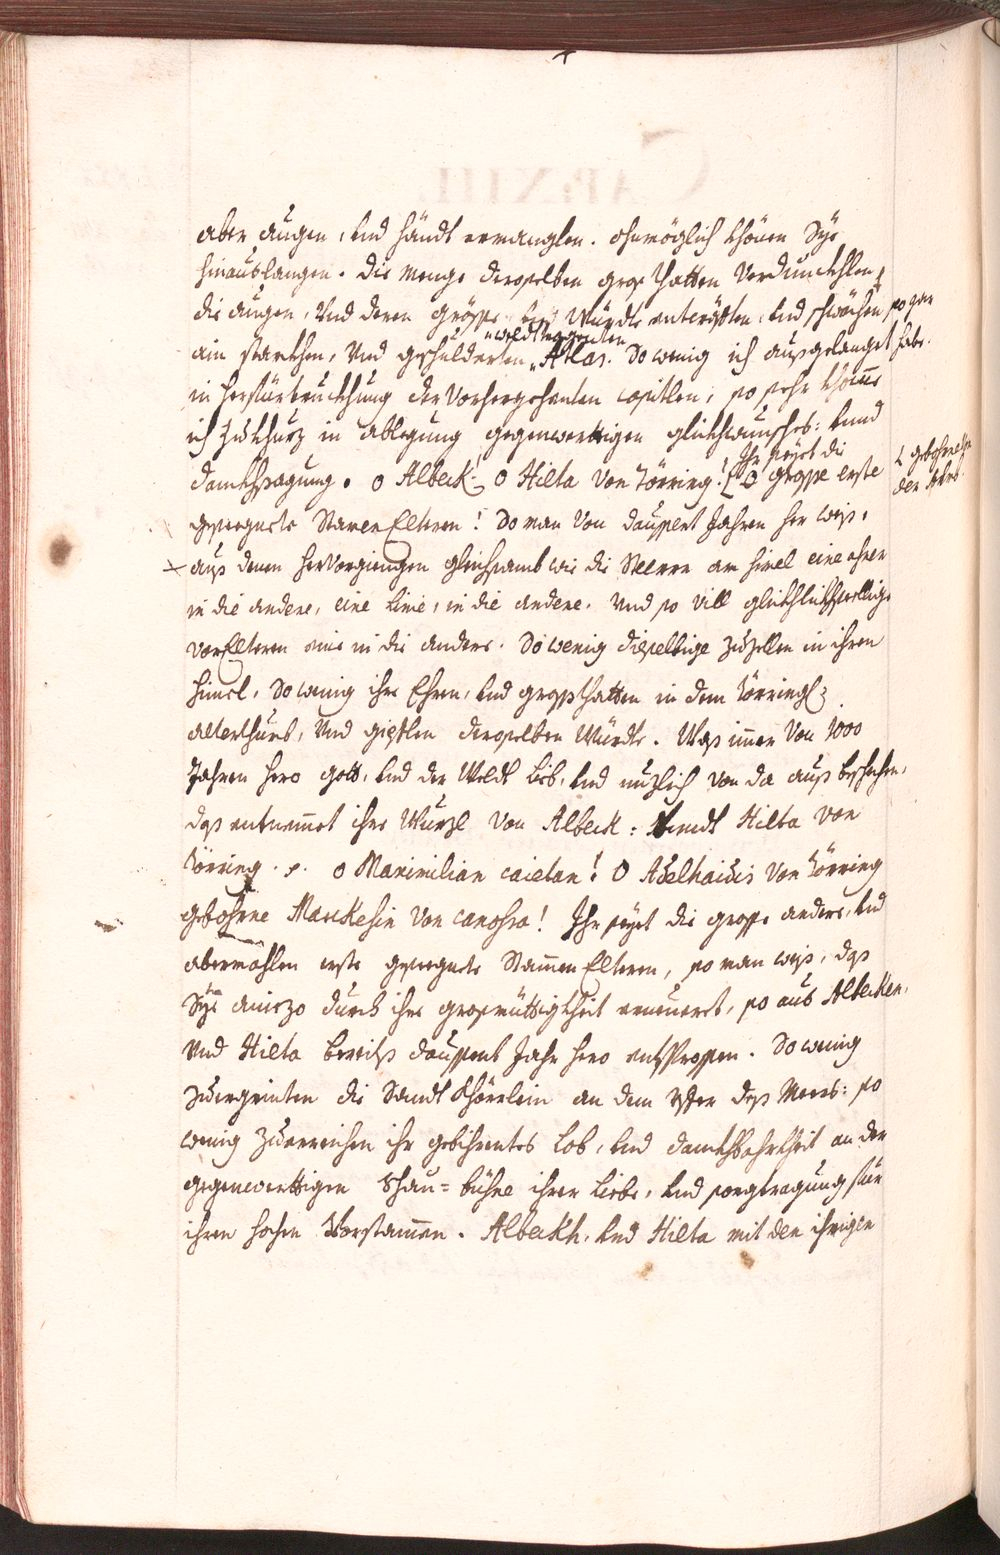 aber augen, und händt ermanglen. ohnmöglich khönen Sye
hinauslangen. die menge derselben gross thatten verdunckhlen
die augen, Und deren grösse Würdte entrüsten, und schwächen so gar
weldttragenten
ain starkhen, Und geschulderten Atlas. So wenig ich aussgelanget habe.
in herfürtruckhung der vorhergehenten capitlen, so sehr khöme
ich zu khurz in ablegung gegenwerttigen glickhwunsches: unnd
Ihr seyet die
dankhsagung. o Albeck! o Hilta von Törring! O grosse erste
gesegnete Stamen Elteren! So man von daussent Jahren her weis,
auss denen hervorgiengen gleichsamb wie die Steren am himel eine ahrer
in die andere, eine Linie, in die andere. Und so vill glickhlichseelige
vorElteren eine in die andere. So wenig dieselbige zuzellen in ihren
himel, So wenig ihre Ehren, und grossthatten in dem Törringl:
alterthumb, Und giplen derselben Würdte. Wass imer von 1000
Jahren hero gott, und der Weldt lieb, und nuzlich von da auss beschehen,
dass entnemet ihre Wurzl von Albeck: unndt Hilta von
Törring. p. o Maximilian caietan! O Adelhaidis von Törring
gebohrne Marckesin von canossa! Ihr seyet die grosse andere, und
abermahlen erste gesegnete Stamen Elteren, so man weis, dass
Sye aniezo durch ihre grossmüttigkheit erneueret, so aus Albecken,
Und Hilta bereitss daussent Jahr hero entsprossen. So wenig
zuergrinten die Sandt Khörrlein an dem Uffer dess Meers: so
wenig zuerreichen ihr gebihrentes lob, und danckhbahrkheit an der
gegenwerttigen Schau-bühne ihrer liebe, und sorgtragung für
ihren hochen Vorstamen. Albeckh, und Hilta mit den ihrigen